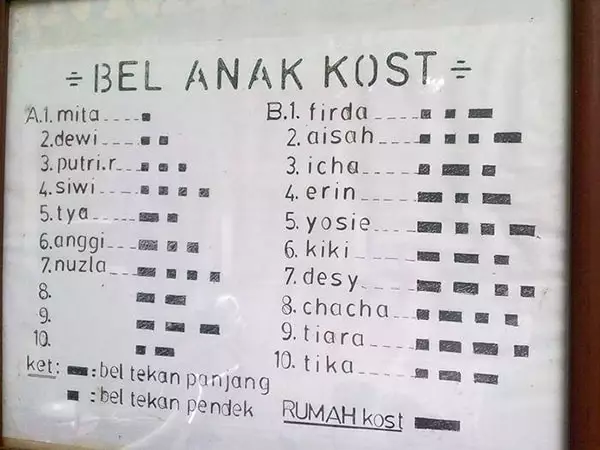 ÷ BEL ANAK KOST ÷
A.1. mita
2. dewi
3. putri.r
4. siwi
5. tya
6. anggi
7. nuzla
8.
9.
10.
ket: ▬ : bel tekan panjang
▪ : bel tekan pendek
B.1. firda
2. aisah
3. icha
4. erin
5. yosie
6. kiki
7. desy
8. chacha
9. tiara
10. tika
RUMAH kost